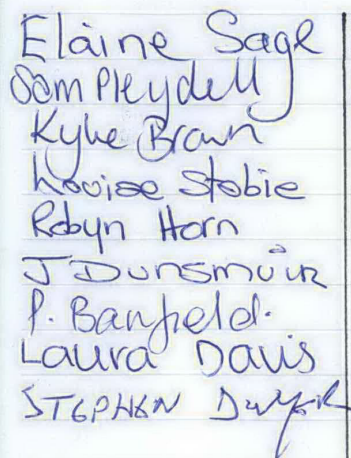 Elaine Sage
Sam Pleydell
Kylie Brown
Louise Stobie
Robyn Horn
J Dunsmuir
P. Banfield.
Laura Davis
STEPHEN